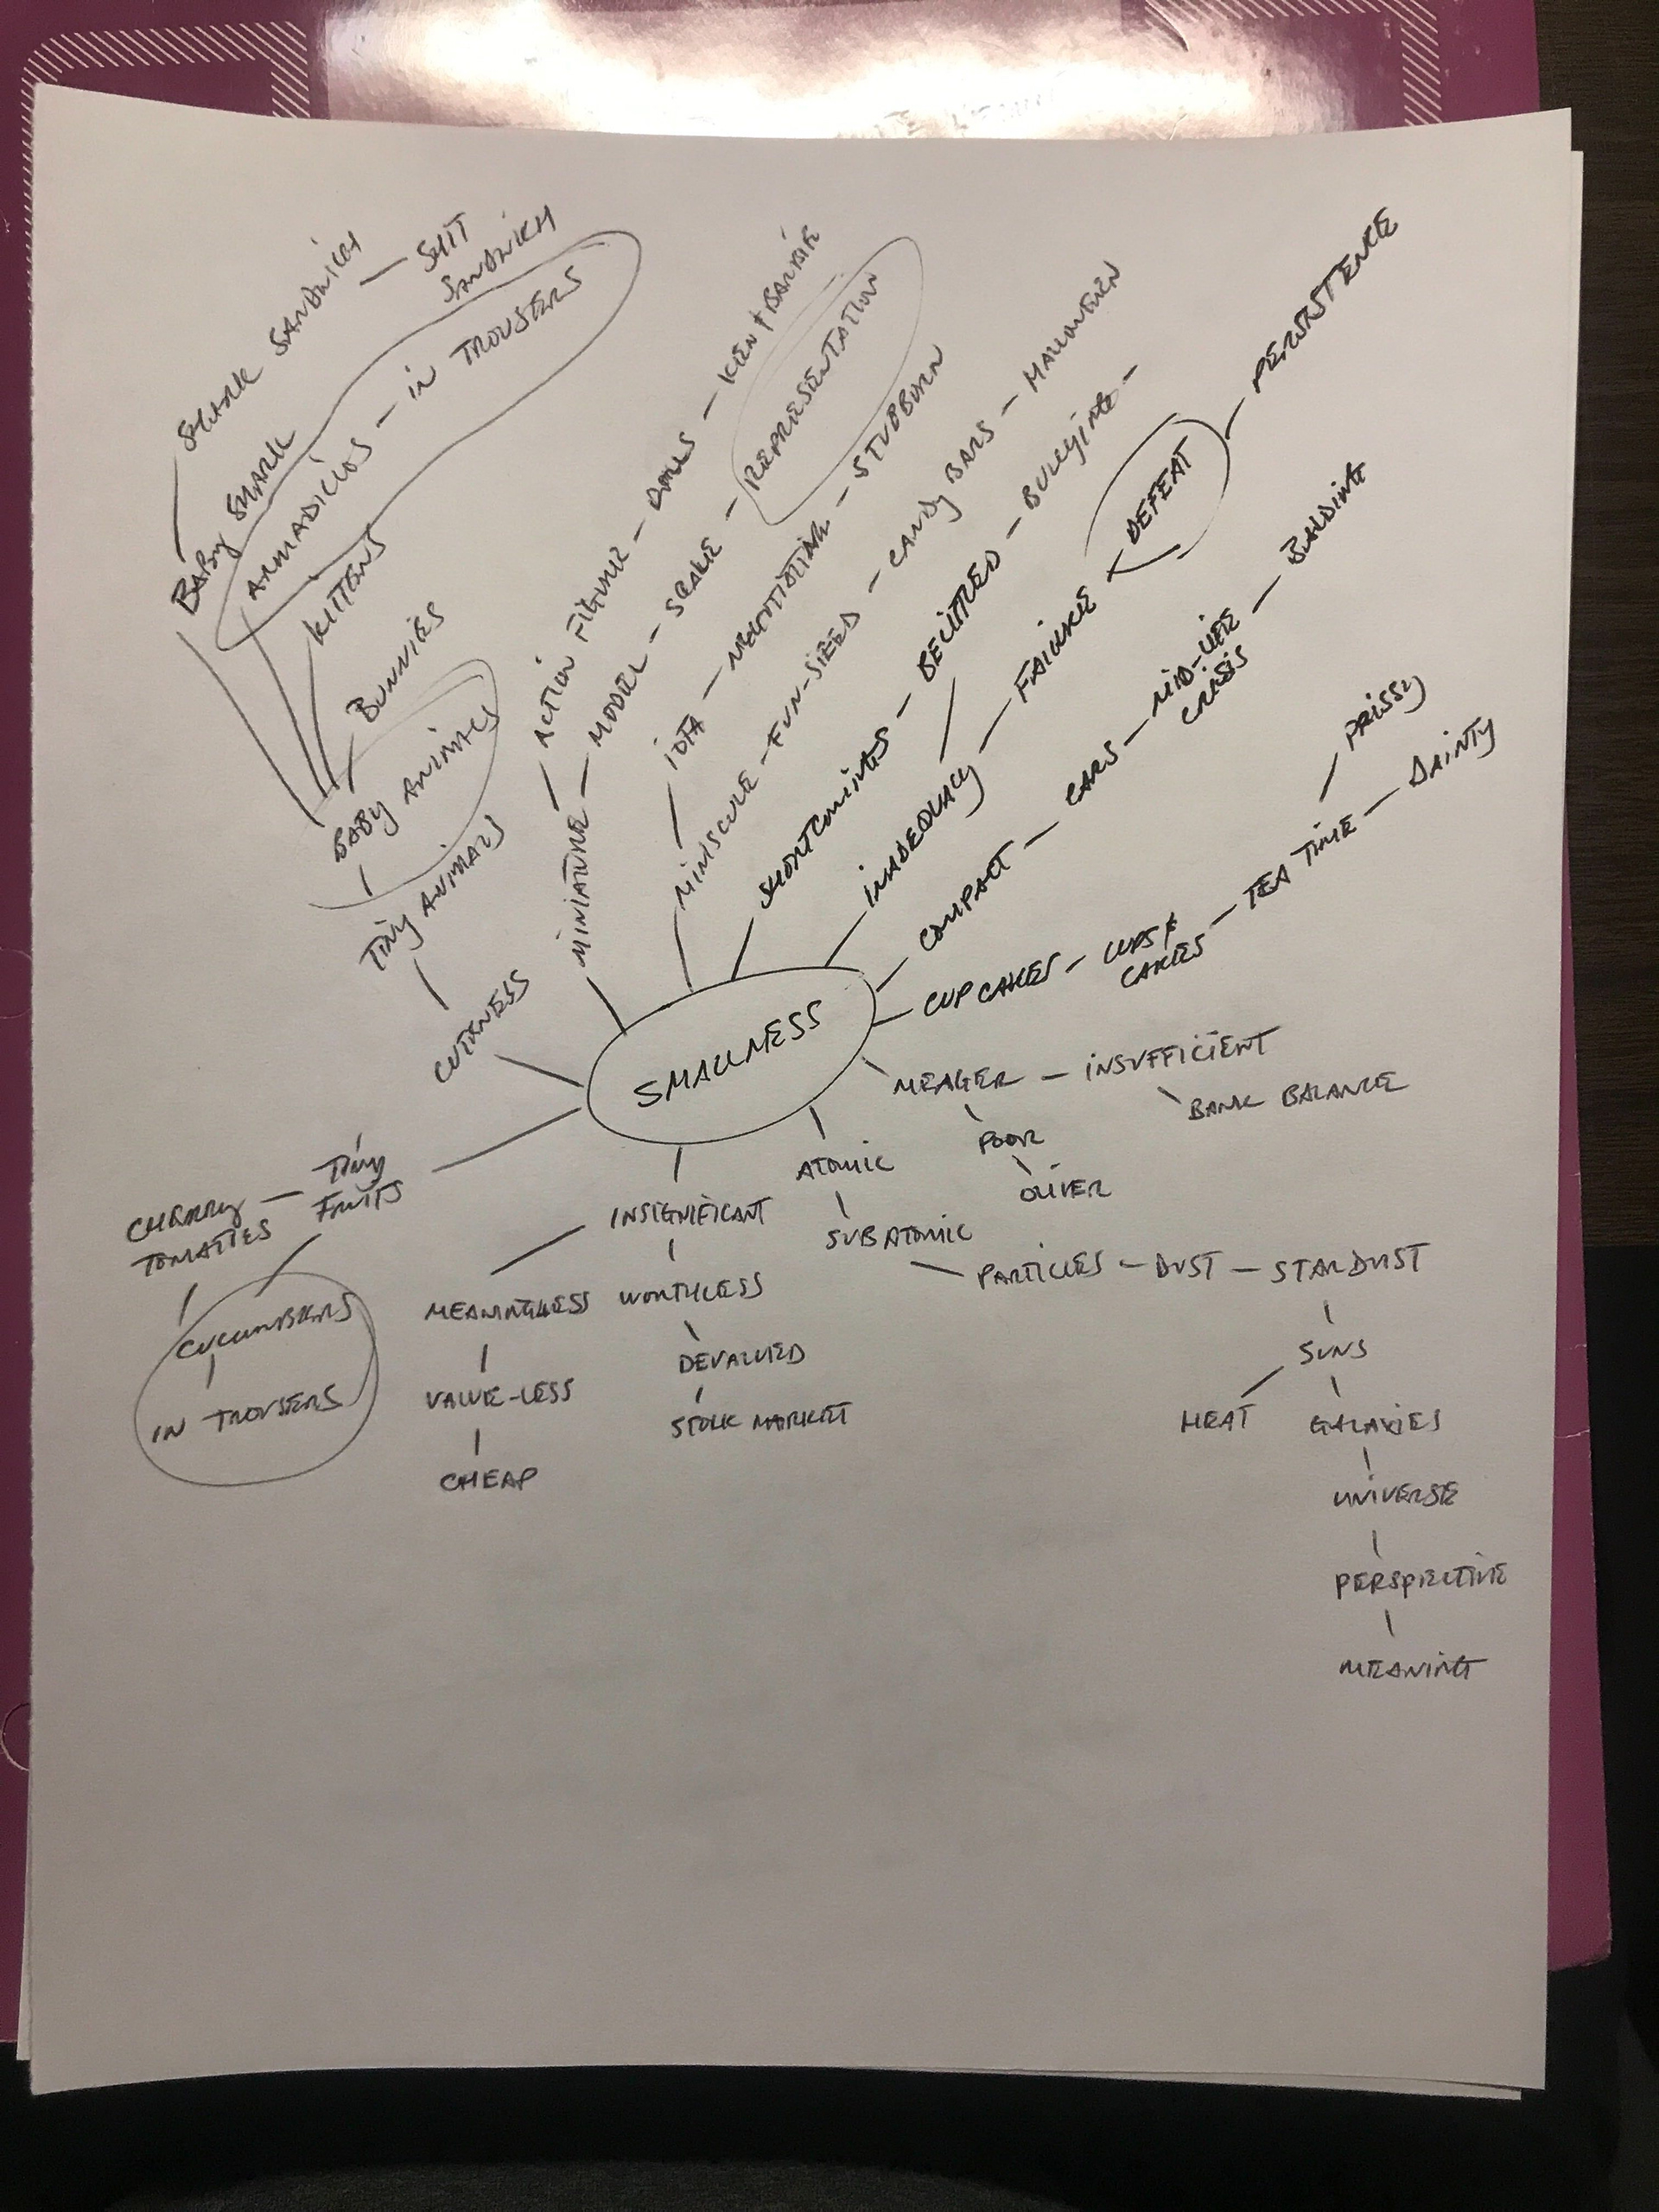 SHARK SANDWICH — SHIT
SANDWICH
BABY SHARK
ARMADILLOS — IN TROUSERS
KITTENS
BUNNIES
BABY ANIMALS
TINY ANIMALS
CUTENESS
ACTION FIGURE — DOLLS — KEN + BARBIE
MINIATURE — MODEL — SCALE — REPRESENTATION
IOTA — NEGOTIATING — STUBBORN
MINSCULE — FUN-SIZED — CANDY BARS — HALLOWEEN
SHORTCOMINGS — BELITTLED — BULLYING —
INADEQUACY — FAILURE — DEFEAT — PERSISTENCE
COMPACT — CARS — MID-LIFE
CRISIS — BALDING
CUPCAKES — CUPS &
CAKES — TEA TIME — DAINTY
PRISSY
SMALLNESS
MEAGER — INSUFFICIENT
BANK BALANCE
POOR
OLIVER
ATOMIC
SUBATOMIC
PARTICLES — DUST — STARDUST
SUNS
HEAT
GALAXIES
UNIVERSE
PERSPECTIVE
MEANING
INSIGNIFICANT
MEANINGLESS
VALUE-LESS
CHEAP
WORTHLESS
DEVALUED
STOCK MARKET
TINY
FRUITS
CHERRY
TOMATOES
CUCUMBERS
IN TROUSERS